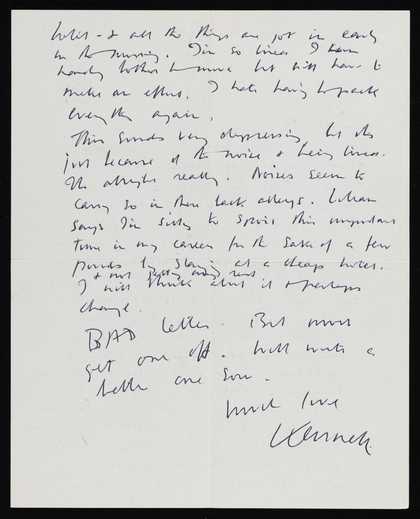 hotel - & all the things are put in early
in the morning. I'm so tired I have
hardly bothered to move but will have to
make an effort. I hate having to pack
everything again.
This sounds very depressing but it's
just because of the noise & being tired.
It's alright really. Noises seem to
carry so in these back alleys. Lilian
says I'm silly to spoil this important
time in my career for the sake of a few
pounds by staying at a cheap hotel.
& not getting any rest.
I will think about it & perhaps
change.
BAD letter. But must
get one off. Will write a
better one soon.
much love
Kenneth.